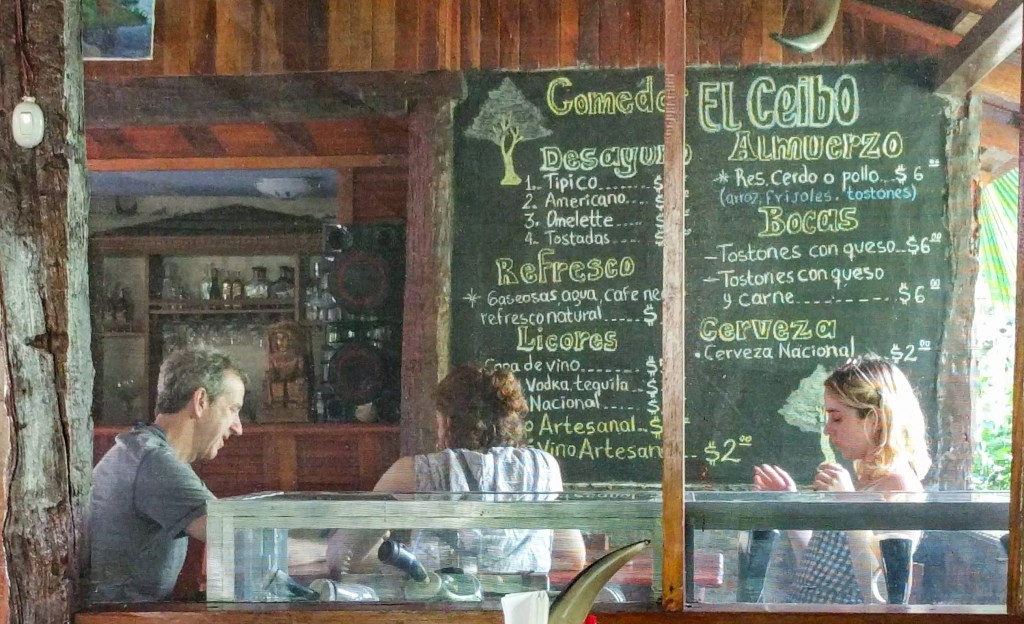 Comedo EL CeiBo
Desayuno
1. Tipico........$
2. Americano....$
3. Omelette.....$
4. Tostadas.....$
Refresco
* Gaseosas agua, cafe ne
refresco natural....$
Licores
Copa de vino...$
Vodka, tequila...$
Nacional.......
Artesanal..$
Vino Artesan
$2⁰⁰
Almuerzo
* Res, Cerdo o pollo..$6
(arroz, frijoles, tostones)
Bocas
-Tostones con queso..$6⁰⁰
-Tostones con queso
y carne............$6⁰⁰
Cerveza
• Cerveza Nacional $2⁰⁰